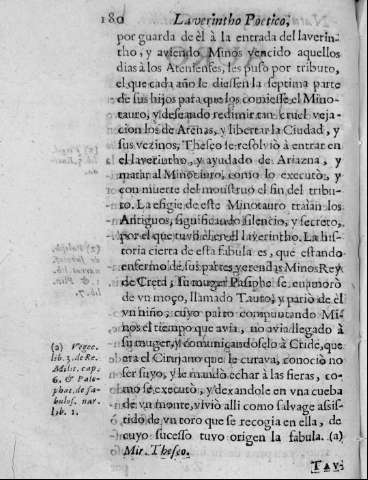 180 Laverintho Poetico,
por guarda de èl à la entrada del laverin-
tho, y aviendo Minos vencido aquellos
dias à los Atenienses, les puso por tributo,
el que cada año le diessen la septima parte
de sus hijos para que los comiesse el Mino-
tauro, y deseando redimir tan cruel veja-
cion los de Atenas, y libertar la Ciudad, y
sus vezinos, Theseo se resolviò à entrar en
el laverintho, y ayudado de Ariazna, y
matar al Minotauro, como lo executò, y
con muerte del monstruo el fin del tribu-
to. La efigie de este Minotauro traìan los
Antiguos, significando silencio, y secreto,
por el que tuvo el en el laverintho. La his-
toria cierta de esta fabula es, que estando
enfermo de sus partes verendas Minos Rey
de Creta, su muger Pasiphe se enamorò
de vn moço, llamado Tauro, y pariò de èl
vn niño; cuyo parto computando Mi-
nos el tiempo que avia, no avia llegado à
su muger, y comunicandoselo à Cride, que
era el Cirujano que le curava, conociò no
ser suyo, y le mandò echar à las fieras, co-
mo se executò, y dexandole en vna cueba
de vn monte, viviò alli como salvage assis-
tido de vn toro que se recogia en ella, de
cuyo sucesso tuvo origen la fabula. (a)
Mir. Theseo.
TAV-
(a) Veget.
lib. 3. de Re
Milit. cap.
6. & Pale-
phat. de fa-
bulos. nar.
lib. 1.